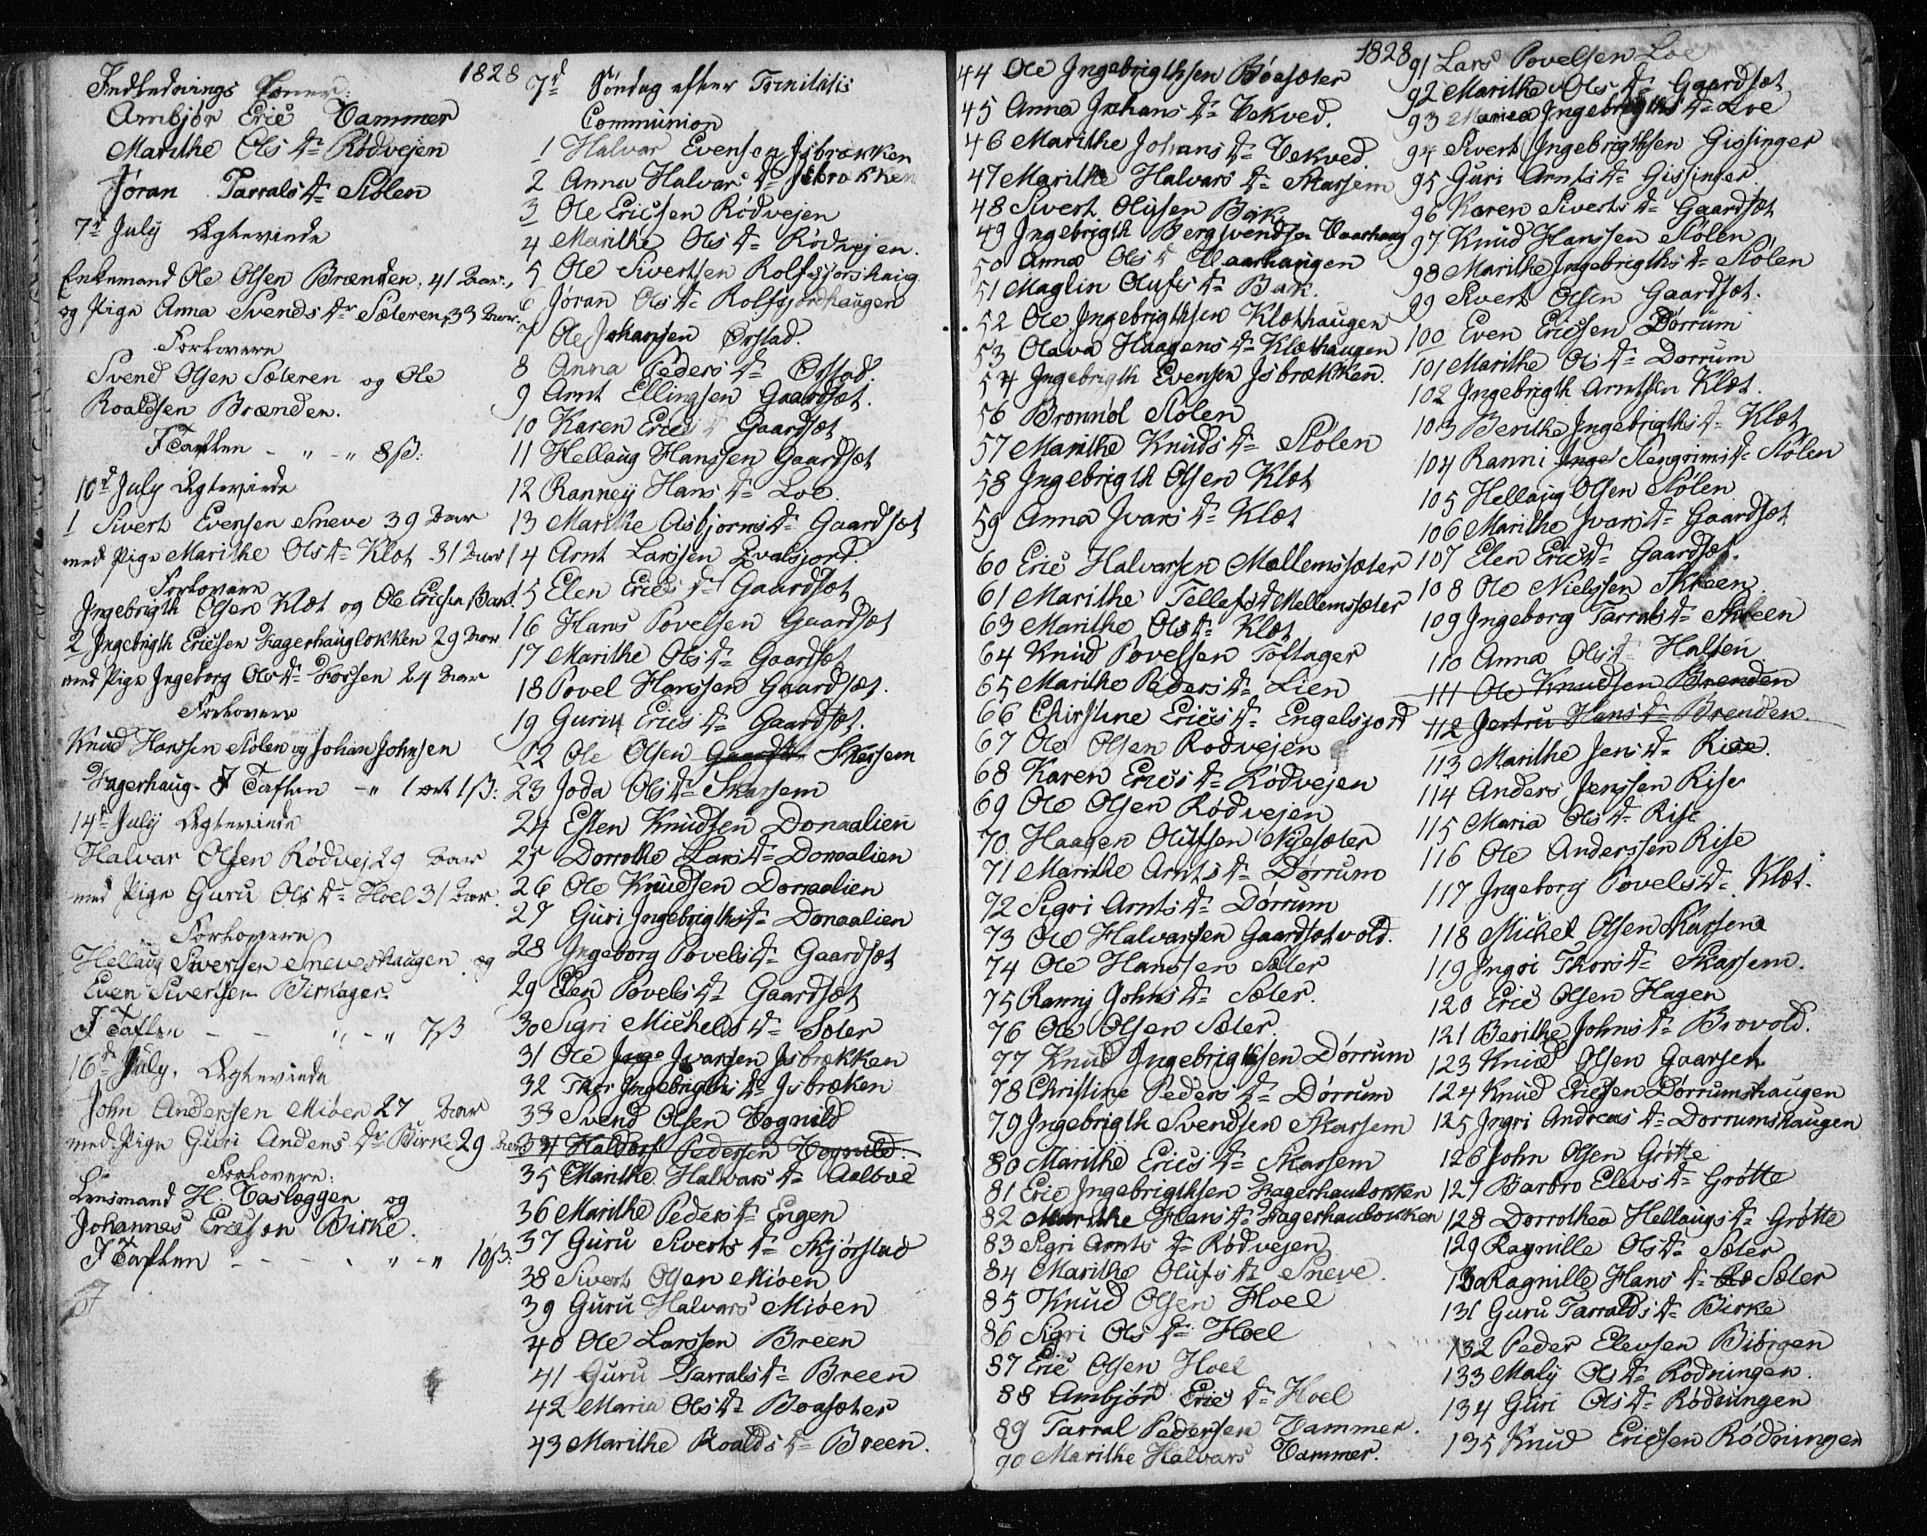 1828
Indlednings Koner:
Ambjør Erics Vammer
Marithe Ols Dr Rødvejen
Jøran Tarrals Dr Stølen
7de July Ægteviede
Enkemand Ole Olsen Brænden, 41 Aar,
og Pige Anna Svends Dr Sæteren, 33 Aar
Forlovere
Svend Olsen Sæteren og Ole
Roaldsen Brænden.
I Taflen - " - " 8 ß:
10de July Ægteviede
1 Sivert Evensen Sneve 39 Aar
med Pige Marithe Ols Dr Klæt 31 Aar
Forlovere
Ingebrigth Olsen Klæt og Ole Ericsen
2 Ingebrigth Ericsen Fagerhaugløkken 29 Aar
med Pige Ingeborg Ols Dr Fossen 24 Aar
Forlovere
Knud Hanssen Stølen og Johan Johnsen
Fagerhaug. I Taflen - " 1 ort 1 ß:
14de July Ægteviede
Halvar Olsen Rødvej 29 Aar
med Pige Guru Ols Dr Hoel 31 Aar.
Forlovere
Hellaug Sivertsen Sneveshaugen og
Even Sivertsen Birkager.
I Taflen - - " - " 7 ß
16de July. Ægteviede
John Anderssen Miøen 27 Aar
med Pige Guri Anders Dr Birke 29 Aar
Forlovere:
Lensmand H: Vasleggen og
Johannes Ericson Birke.
I Taflen - - - - " - " 10 ß:
7de Søndag efter Trinitatis
Communion
1 Halvar Evensen Isbrækken
2 Anna Halvars Dr Isbrækken
3 Ole Ericsen Rødvejen
4 Marithe Ols Dr Rødvejen.
5 Ole Sivertsen Rolfsjorshaug
6 Jøran Ols Dr Rolfsjordhaugen
7 Ole Johansen Ørstad.
8 Anna Peders Dr Ørstad.
9 Arnt Ellingsen Gaardsæt.
10 Karen Erics Dr Gaardsæt
11 Hellaug Hanssen Gaardsæt
12 Ranney Hans Dr Loe.
13 Marithe Asbjørns Dr Gaardsæt
14 Arnt Larssen Evalsjord.
15 Elen Erics Dr Gaardsæt
16 Hans Povelsen Gaardsæt
17 Marithe Ols Dr Gaardsæt
18 Povel Hanssen Gaardsæt.
19 Guru Erics Dr Gaardsæt.
22 Ole Olsen Gaardsæt Skarsem
23 Joda Ols Dr Skarsem
24 Esten Knudsen Donaalien
25 Dorrothe Lars Dr Donaalien
26 Ole Knudsen Donaalien
27 Guri Ingebrigths Dr Donaalien
28 Ingeborg Povels Dr Gaardsæt
29 Elen Povels Dr Gaardsæt
30 Sigri Michels Dr Sæter
31 Ole Inge Ivarsen Isbrækken
32 Thor Ingebrigths Dr Isbræken
33 Svend Olsen Vognild
34 Haldor Pedersen Vognild.
35 Marithe Halvars Dr Aalbue
36 Marithe Peders Dr Engen
37 Guru Siverts Dr Skjørstad
38 Sivert Olsen Miøen
39 Guru Halvars Miøen
40 Ole Larssen Breen
41 Guru Tarrals Dr Breen
42 Maria Ols Dr Boasæter
43 Marithe Roalds Dr Breen.
1828
44 Ole Ingebrigthsen Boasæter
45 Anna Johans Dr Vekved.
46 Marithe Johans Dr Vekved.
47 Marithe Halvars Dr Skarsem
48 Sivert Olussen Bak
49 Ingebrigth Bergsvendsen Vaarhaug
50 Anna Ols Dr Vaarhaugen
51 Maglin Olufs Dr Bak.
52 Ole Ingebrigthsen Klæthaugen
53 Olava Haagens Dr Klæthaugen
54 Ingebrigth Evensen Isbrækken.
56 Brønnøl Stølen
57 Marithe Knuds Dr Stølen
58 Ingebrigth Olsen Klæt
59 Anna Ivars Dr Klæt
60 Eric Halvarsen Mellemssæter
61 Marithe Tellefs Dr Mellemssæter
63 Marithe Ols Dr Klæt
64 Knud Povelsen Toftager
65 Marithe Peders Dr Lien
66 Christine Erics Dr Engelsjord
67 Ole Olsen Rodvejen
68 Karen Erics Dr Rødvejen
69 Ole Olsen Rødvejen
70. Haagen Olufsen Nyesæter
71 Marithe Arnts Dr Dørrum
72 Sigri Arnts Dr Dørrum
73 Ole Halvarsen Gaardsætvold.
74 Ole Hanssen Sæter
75 Ranny Johns Dr Sæter.
76 Ole Olsen Sæter.
77 Knud Ingebrigthsen Dørrum
78 Christine Peders Dr Dørrum
79 Ingebrigth Svendsen Skarsem
80 Marithe Erics Dr Skarsem
81 Eric Ingebrigthsen Fagerhauløkken
82 Marithe Hans Dr Fagerhauløkken
83 Sigri Arnts Dr Rødvejen
84 Marithe Olufs Dr Sneve.
85 Knud Olsen Hoel
86 Sigri Ols Dr Hoel
87 Eric Olsen Hoel
88 Ambjør Erics Dr Hoel
89 Tarral Pedersen Vammer.
90 Marithe Halvars Vammer.
91 Lars Povelsen Loe
92 Marithe Ols Dr Gaardsæt
93 Marica Ingebrigths Dr Loe
94 Sivert Ingebrigthsen Gissinger
95 Guri Arnts Dr Gissinger
96 Karen Siverts Dr Gaardsæt
97 Knud Hanssen Stølen
98 Marithe Ingebrigths Dr Stølen
99 Sivert Olsen Gaardsæt.
100 Even Ericsen Dørrum
101 Marithe Ols Dr Dørrum
102 Ingebrigth Arntsen Klæt.
103 Berithe Ingebrigths Dr Klæt
104 Ranni Inge Stengrims Dr Stølen
105 Hellaug Olsen Stølen
106 Marithe Ivars Dr Gaardsæt
107 Elen Erics Dr Gaardsæt.
108 Ole Nielssen Skreen
109 Ingeborg Tarrals Dr Skreen
110 Anna Ols Dr Halsen
111 Ole Knudsen Brenden
112 Jertru Hans Dr Brenden.
113 Marithe Jens Dr Rise.
114 Anders Jenssen Rise
115 Maria Ols Dr Rise
116 Ole Anderssen Rise
117 Ingeborg Povels Dr Klæt.
118 Michel Olsen Skarsem
119 Ingri Thors Dr Skarsem.
120 Eric Olsen Hagen
121 Berithe Johns Dr Brovold.
123 Knud Olsen Gaarset
124 Knud Ericsen Dørrumshaugen
125 Ingri Andreas Dr Dorrumshaugen
126 John Olsen Grøtte
127 Barbro Elevs Dr Grøtte
128 Dorrothea Hellaugs Dr Grøtte
129 Ragnille Ols Dr Sæter
130 Ragnille Hans Dr Sæter
131 Guru Tarralds Dr Birke
132 Peder Elevsen Biørgen
133 Maly Ols Dr Rodningen.
134 Guri Ols Dr Rødningen
135 Knud Ericsen Rødningen